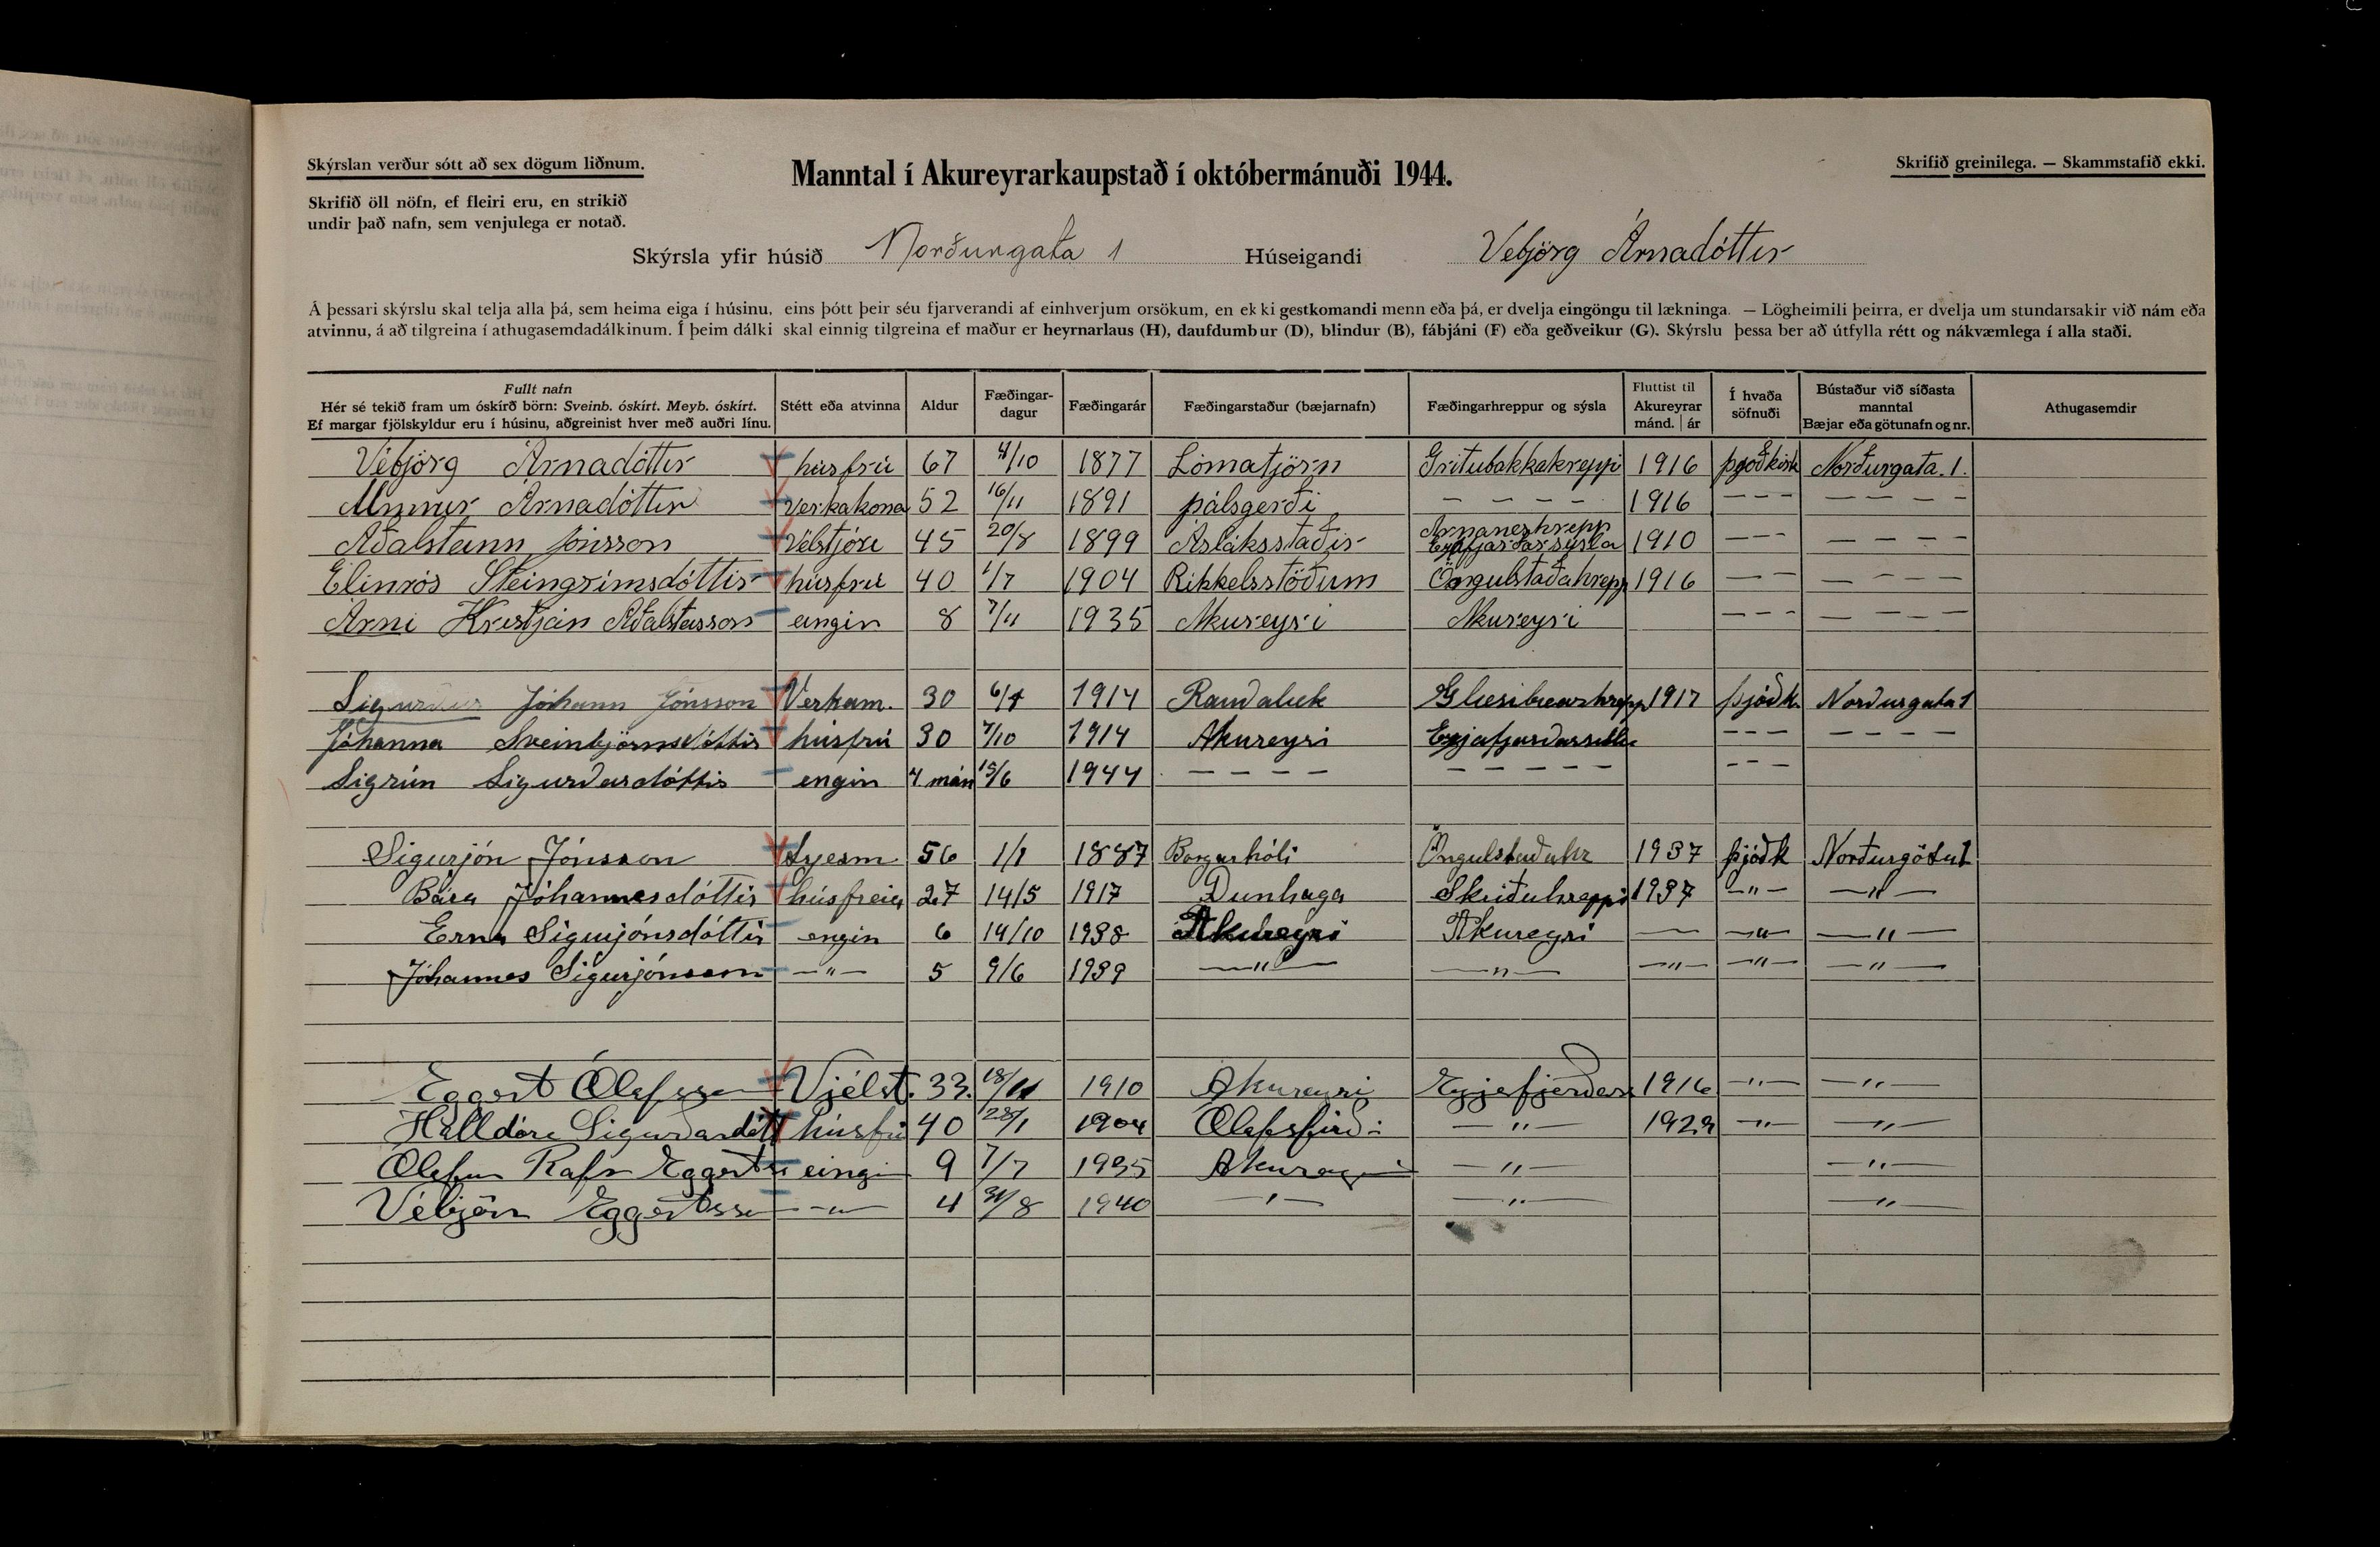 Skýrslan verður sótt að sex dögum liðnum.
Manntal í Akureyrarkaupstað í októbermánuði 1944.
Skrifið greinilega. — Skammstafið ekki.
Skrifið öll nöfn, ef fleiri eru, en strikið
undir það nafn, sem venjulega er notað.
Skýrsla yfir húsið Norðurgata 1 Húseigandi Vébjörg Árnadóttir
Á þessari skýrslu skal telja alla þá, sem heima eiga í húsinu, eins þótt þeir séu fjarverandi af einhverjum orsökum, en ekki gestkomandi menn eða þá, er dvelja eingöngu til lækninga. — Lögheimili þeirra, er dvelja um stundarsakir við nám eða
atvinnu, á að tilgreina í athugasemdadálkinum. Í þeim dálki skal einnig tilgreina ef maður er heyrnarlaus (H), daufdumbur (D), blindur (B), fábjáni (F) eða geðveikur (G). Skýrslu þessa ber að útfylla rétt og nákvæmlega í alla staði.
Fullt nafn
Hér sé tekið fram um óskírð börn: Sveinb. óskírt. Meyb. óskírt.
Ef margar fjölskyldur eru í húsinu, aðgreinist hver með auðri línu.
Stétt eða atvinna
Aldur
Fæðingar-
dagur
Fæðingarár
Fæðingarstaður (bæjarnafn)
Fæðingarhreppur og sýsla
Fluttist til
Akureyrar
mánd. | ár
Í hvaða
söfnuði
Bústaður við síðasta
manntal
Bæjar eða götunafn og nr.
Athugasemdir
Vébjörg Árnadóttir húsfrú 67 4/10 1877 Lómatjörn Grítubakkahreppi 1916 þjóðkirk Norðurgata 1.
Unnur Árnadóttir Verkakona 52 16/11 1891 pálsgerði – – – – 1916 – – – – – – –
Aðalsteinn Jónsson Vélstjóri 45 20/8 1899 Ásláksstaðir Arnaneshrepp Eyjafjarðarsýsla 1910 – – – – – – –
Elinrós Steingrímsdóttir húsfrú 40 1/7 1904 Rikkelsstöðum Öngulstaðahrepp 1916 – – – – – – –
Árni Kristján Aðalsteisson eingin 8 7/11 1935 Akureyri Akureyri – – – – – – –
Sigurður Jóhann Jónsson Verkam. 30 1914 Glæsibæarhrepp 1917 þjóðk. Norðurgata 1
Jóhanna Sveinbjörnsdóttir húsfrú 30 7/10 1914 Akureyri – – – – – – –
Sigrún Sigurðardóttir engin 4 mán 15/6 1944 – – – – – – – – – – – –
Sigurjón Jónsson 56 1/1 1887 Borgarhóli Öngulstaðahr 1937 þjóðk Norðurgötu 1
Bára Jóhannesdóttir húsfreia 27 14/5 1917 Dunhaga Skriðuhreppi 1937 –"– –"–
Erna Sigurjónsdóttir engin 6 14/10 1938 Akureyri Akureyri – –"– –"–
Jóhannes Sigurjónsson –"– 5 9/6 1939 –"– –"– –"– –"– –"–
Eggert Ólafsson Vjélst. 33. 18/11 1910 Akureyri 1916 –"– –"–
Halldóra Sigurðardótt húsfrú 40 28/1 1904 Ólafsfirði –"– 1929 –"– –"–
Ólafur Rafn Eggerts eingin 9 7/7 1935 Akureyri –"– –"–
Vébjörn Eggertsson –"– 4 31/8 1940 –"– –"– –"–